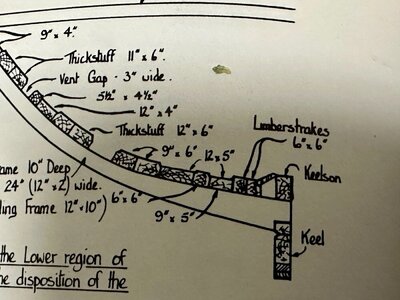 9" x 4"
Thickstuff 11" x 6".
Vent Gap - 3" wide.
5½" x 4½"
12" x 4"
Thickstuff 12" x 6"
Limberstrakes
6" x 6"
9" x 6"
12 x 5"
Keelson
ame 10" Deep
24" (12" x 2) wide.
6" x 6"
ling Frame 12" x 10")
9" x 5"
Keel
the Lower region of
he disposition of the